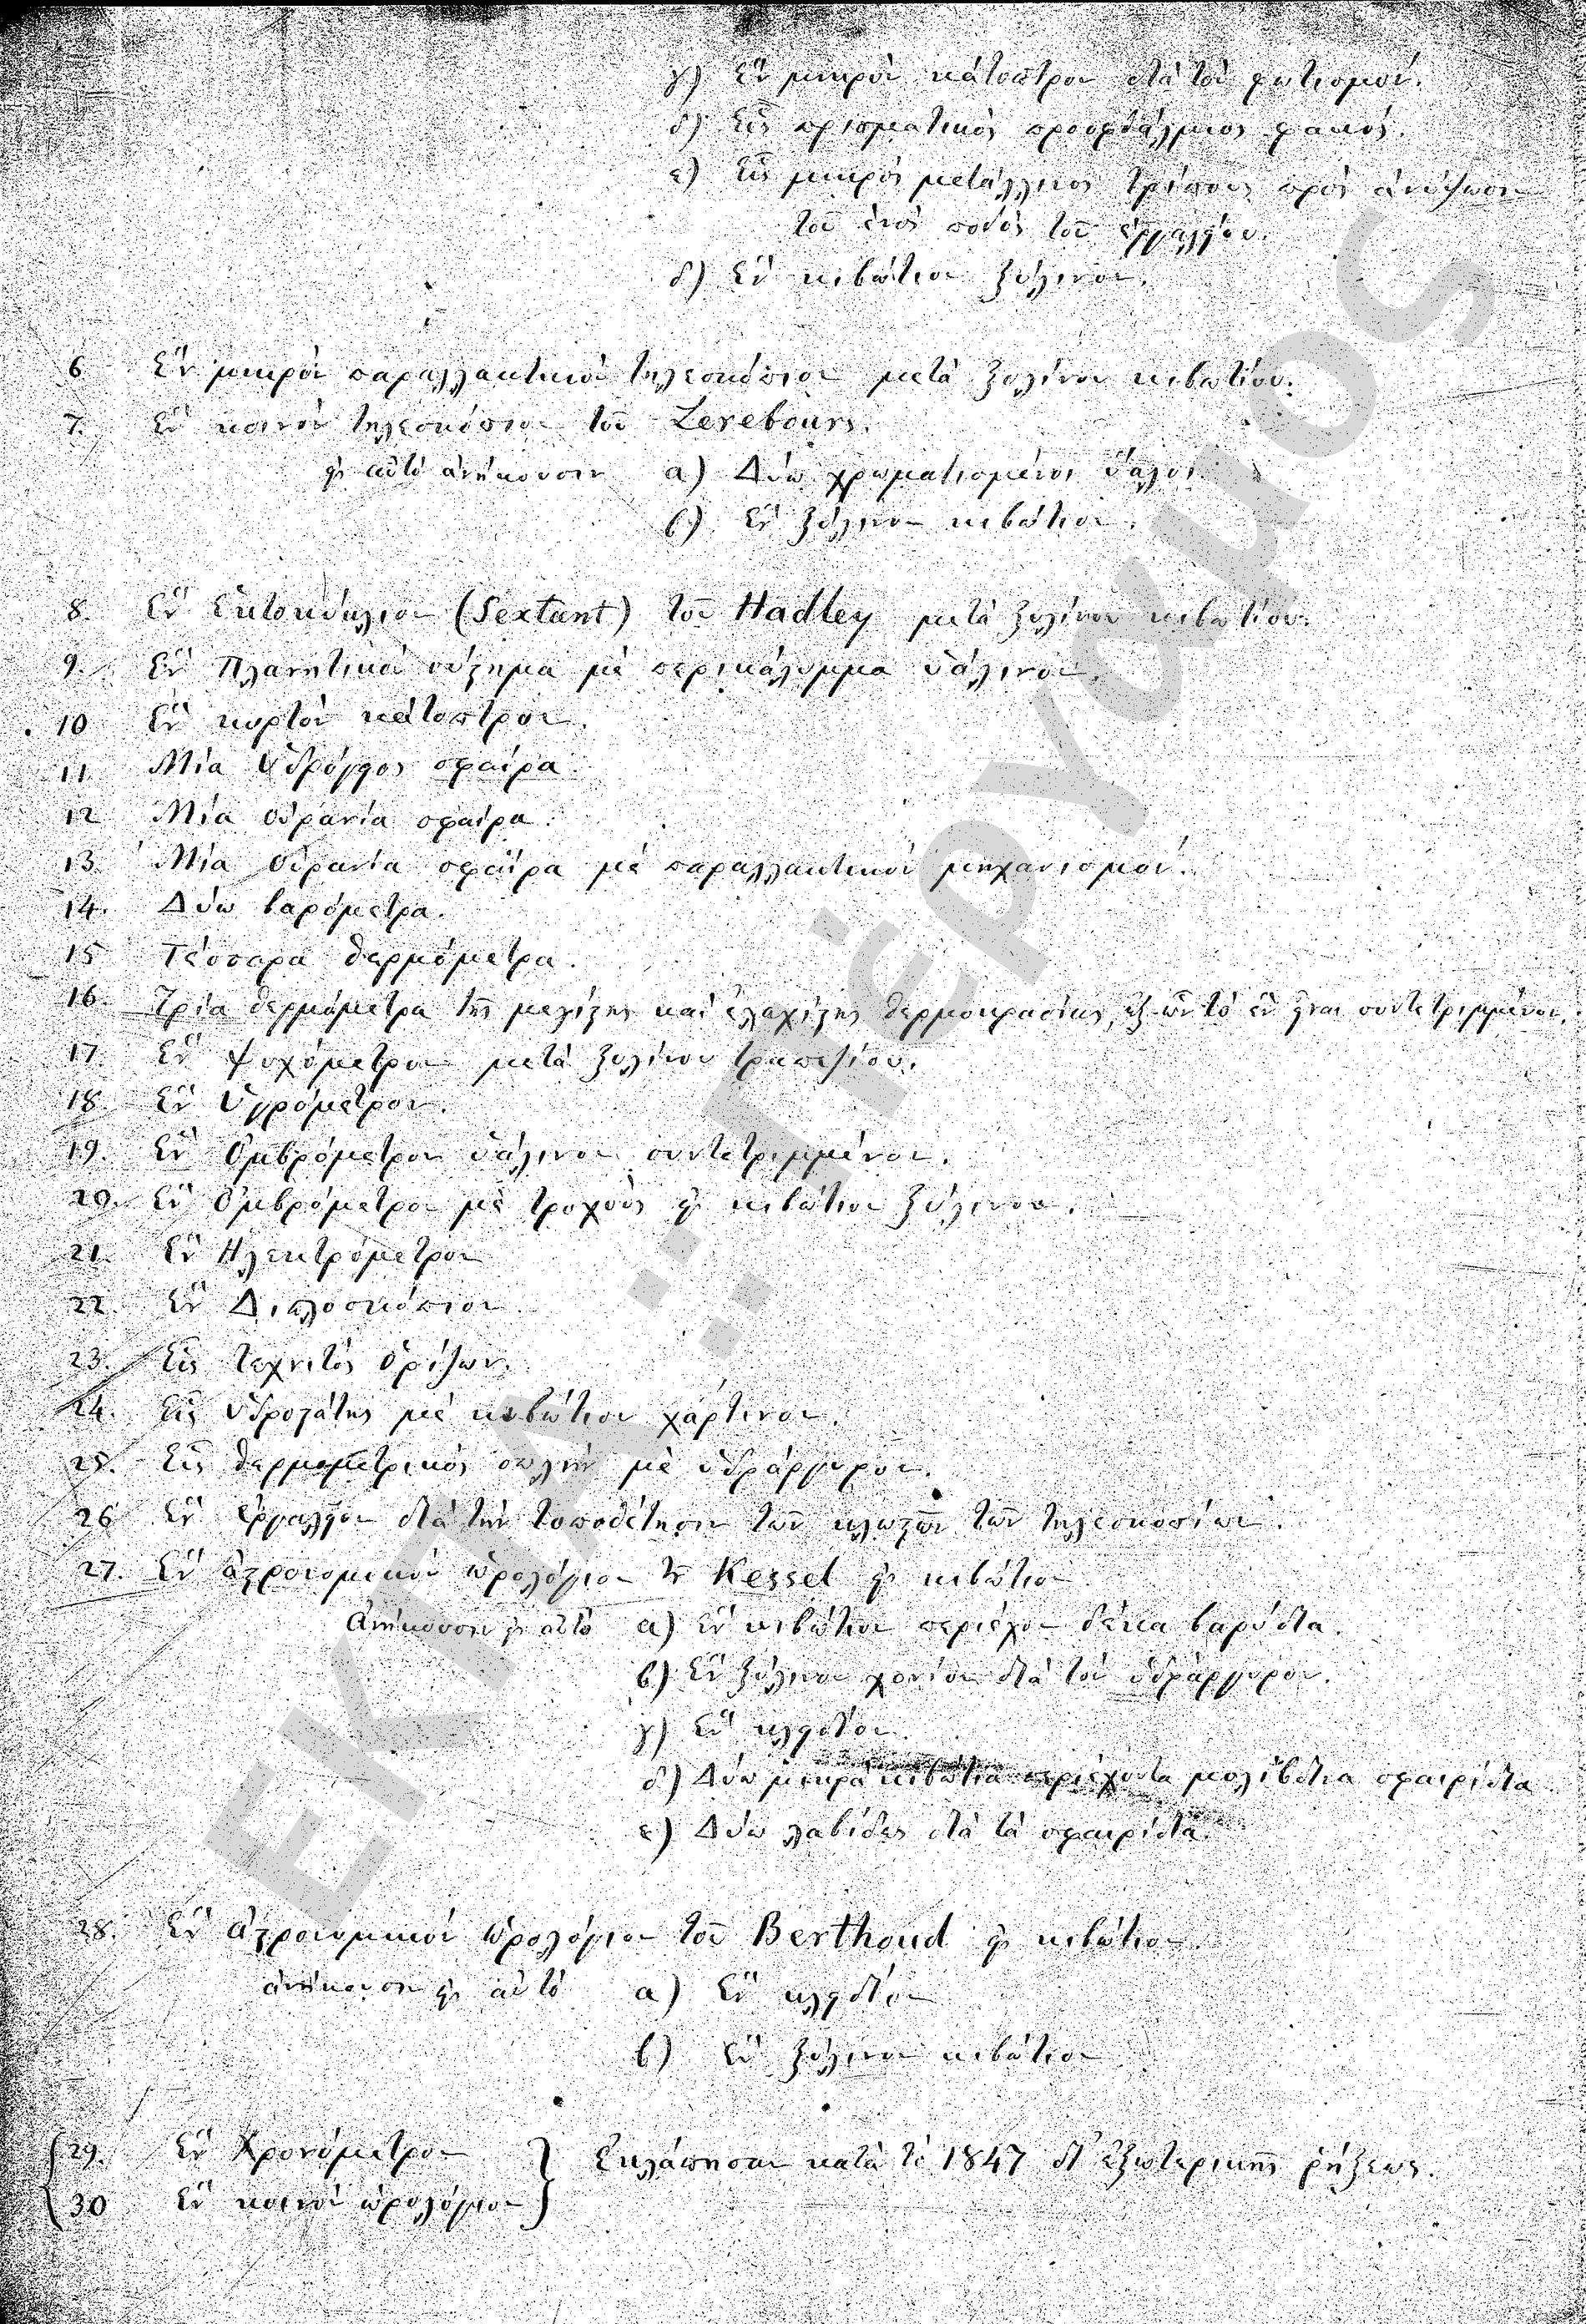 γ) Ἓν μικρὸν κάτοπτρον διὰ τὸν φωτισμόν.
δ) Εἷς πρισματικὸς προσοφθάλμιος φακός.
ε) Εἷς μικρὸς μετάλλινος τρίπους πρὸς ἀνύψωσιν
τοῦ ἑνὸς ποδὸς τοῦ ἐργαλείου.
δ) Ἓν κιβώτιον ξύλινον.
6 Ἓν μικρὸν παραλλακτικὸν τηλεσκόπιον μετὰ ξυλίνου κιβωτίου.
7. Ἓν κοινὸν τηλεσκόπιον τοῦ Lerebours.
εἰς αὐτὸ ἀνήκουσιν α) Δύω χρωματισμένοι ὕαλοι
β) Ἓν ξύλινον κιβώτιον.
8. Ἓν Ἑκτοκύκλιον (Sextant) τοῦ Hadley μετὰ ξυλίνου κιβωτίου.
9. Ἓν Πλανητικὸν σύστημα μὲ περικάλυμμα ὑάλινον.
10 Ἓν κυρτὸν κάτοπτρον.
11 Μία ὑδρόγειος σφαίρα.
12 Μία οὐρανία σφαίρα.
13 Μία οὐρανία σφαίρα μὲ παραλλακτικὸν μηχανισμόν.
14. Δύω βαρόμετρα.
15 Τέσσαρα θερμόμετρα.
16. Τρία θερμόμετρα τῆς μεγίστης καὶ ἐλαχίστης θερμοκρασίας, ἐξ ὧν τὸ ἓν εἶναι συντετριμμένον.
17. Ἓν ψυχόμετρον μετὰ ξυλίνου τραπεζίου.
18. Ἓν ὑγρόμετρον.
19. Ἓν Ὀμβρόμετρον ὑάλινον συντετριμμένον.
20. Ἓν Ὀμβρόμετρον μὲ τροχοὺς εἰς κιβώτιον ξύλινον.
21. Ἓν Ἠλεκτρόμετρον
22. Ἓν Διπλοσκόπιον
23. Εἷς τεχνιτὸς ὁρίζων.
24. Εἷς ὑδροστάτης μὲ κιβώτιον χάρτινον.
25. Εἷς θερμομετρικὸς σωλὴν μὲ ὑδράργυρον.
26 Ἓν ἐργαλεῖον διὰ τὴν τοποθέτησιν τῶν κλωστῶν τῶν τηλεσκοπίων.
27. Ἓν ἀστρονομικὸν ὡρολόγιον τοῦ Kessel εἰς κιβώτιον
Ἀνήκουσιν εἰς αὐτὸ α) Ἓν κιβώτιον περιέχον δέκα βαρύδια.
β) Ἓν ξύλινον χονίον διὰ τὸν ὑδράργυρον.
γ) Ἓν κλειδίον
δ) Δύω μικρὰ κιβώτια περιέχοντα μολίβδια σφαιρίδια
ε) Δύω λαβίδες διὰ τὰ σφαιρίδια.
28. Ἓν ἀστρονομικὸν ὡρολόγιον τοῦ Berthoud εἰς κιβώτιον.
ἀνήκουσιν εἰς αὐτὸ α) Ἓν κλειδίον
β) Ἓν ξύλινον κιβώτιον
29. Ἓν Χρονόμετρον
30 Ἓν κοινὸν ὡρολόγιον
Ἐκλάπησαν κατὰ τὸ 1847 δι' ἐξωτερικῆς ῥήξεως.
ΕΚΠΑ :: Πέργαμος